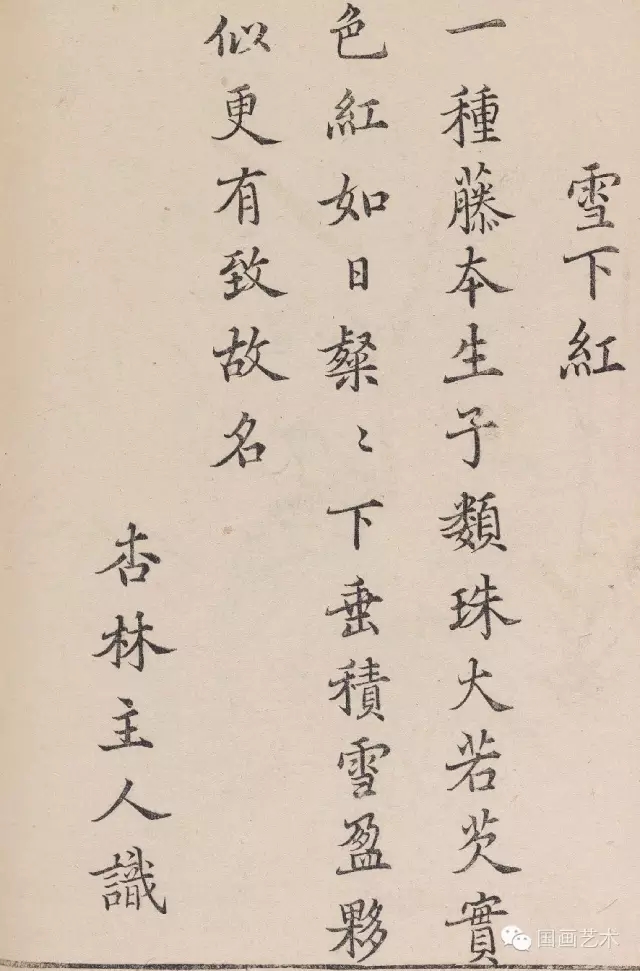 雪下紅
一種藤本生子類珠大若芡實
色紅如日粲〻下垂積雪盈夥
似更有致故名
杏林主人識
国画艺术